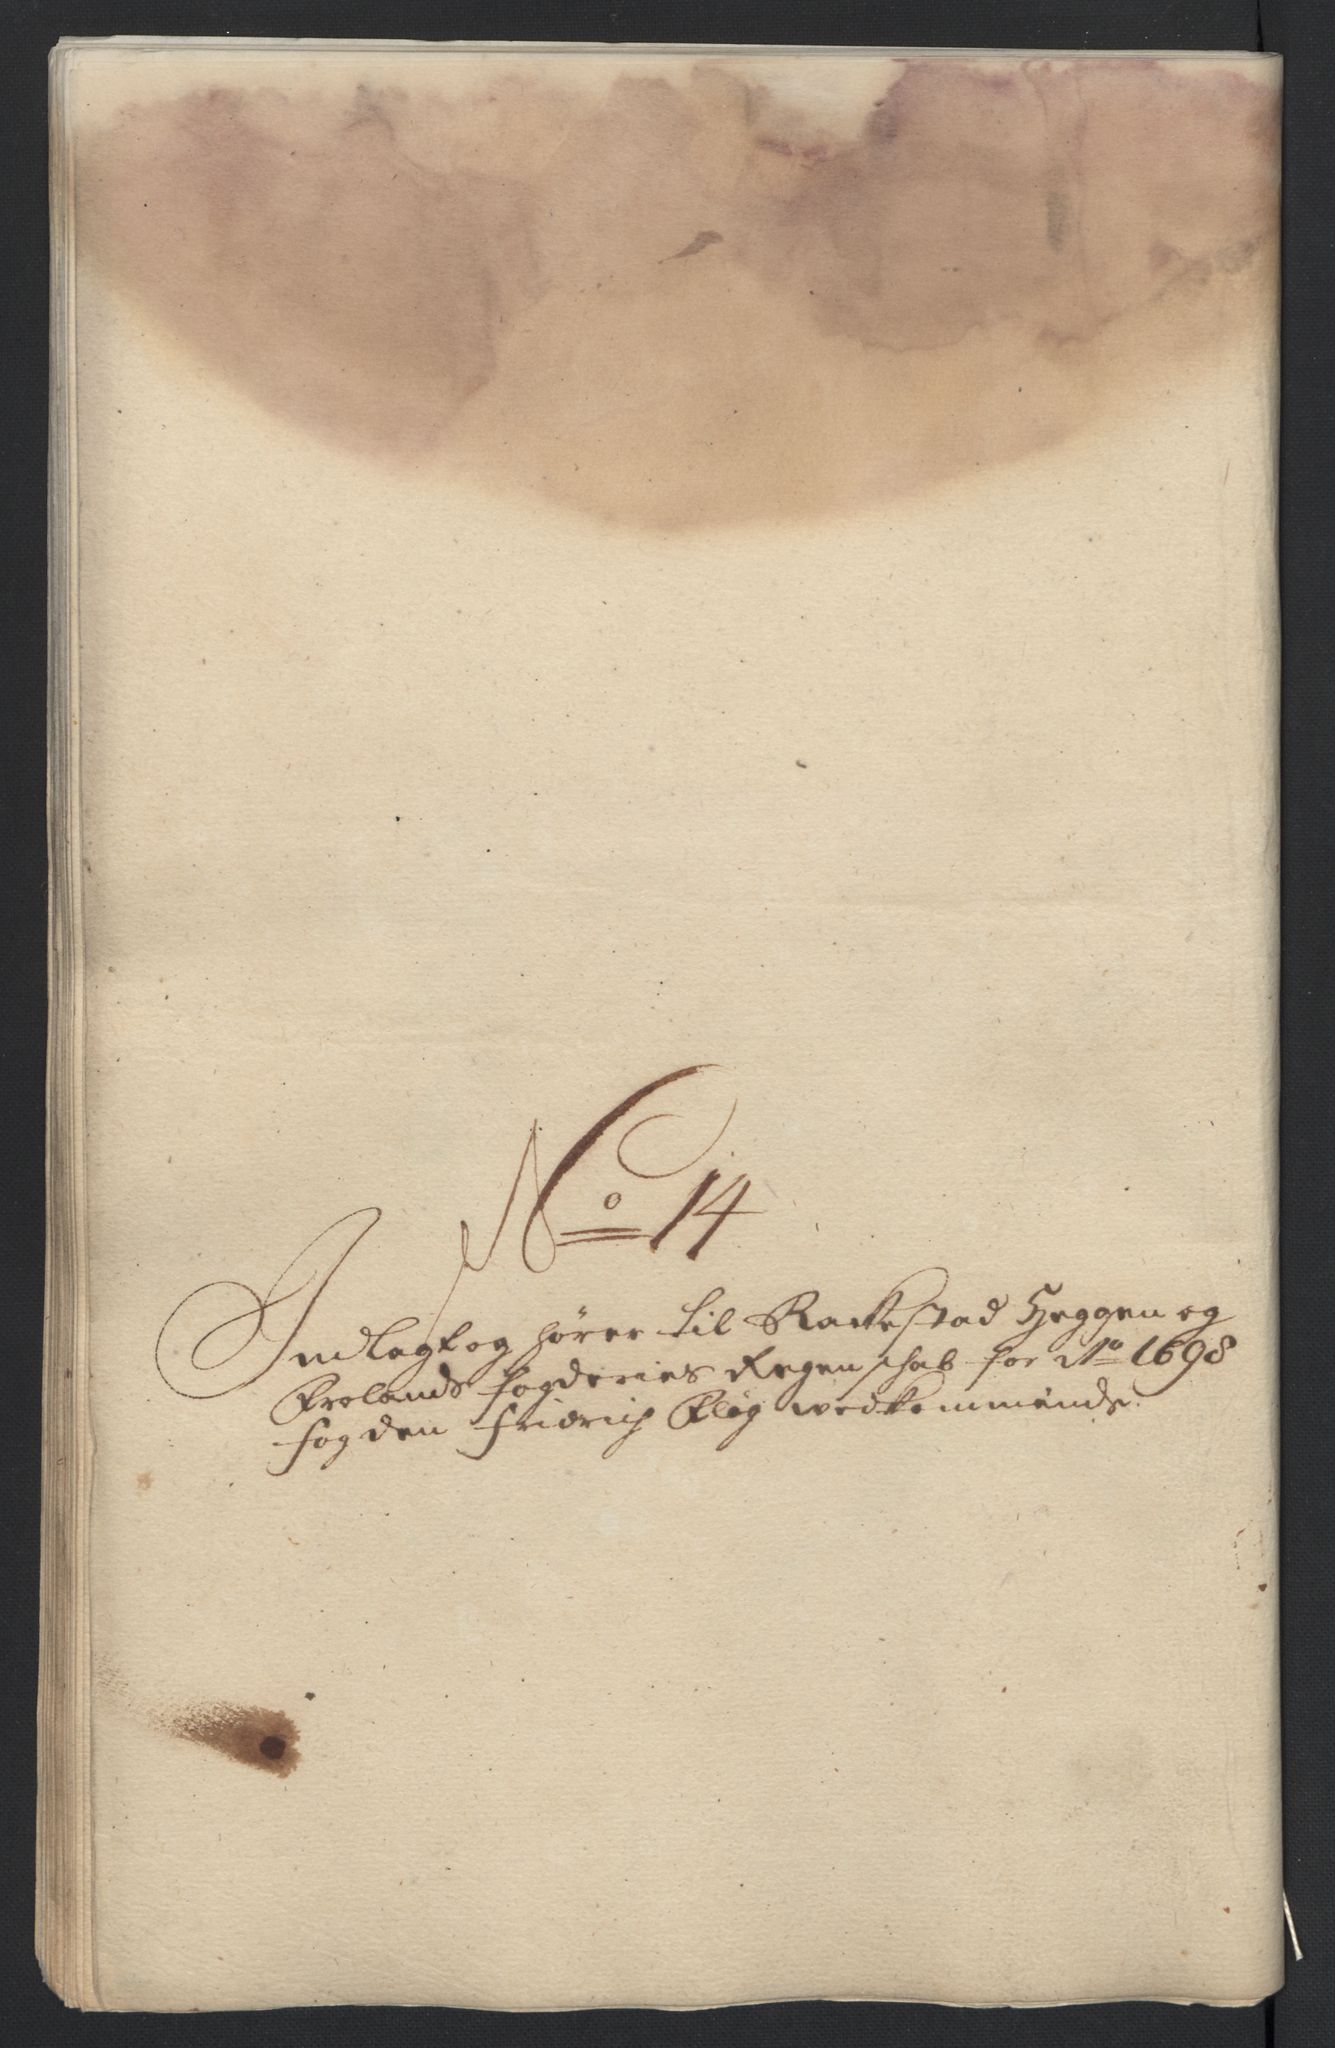 No 14
Indlagt og hører til Rackestad Heggen og
Frolands fogderies Regenschab for Ao 1698
fogden Fridrich Pløg vedkommende.